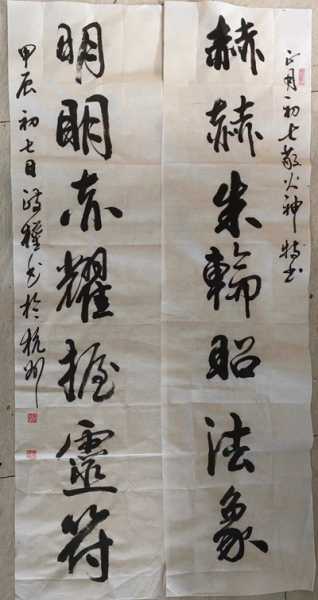 正月初七敬火神特书
赫赫朱輪昭法象
明明赤耀握靈符
甲辰初七日於杭州